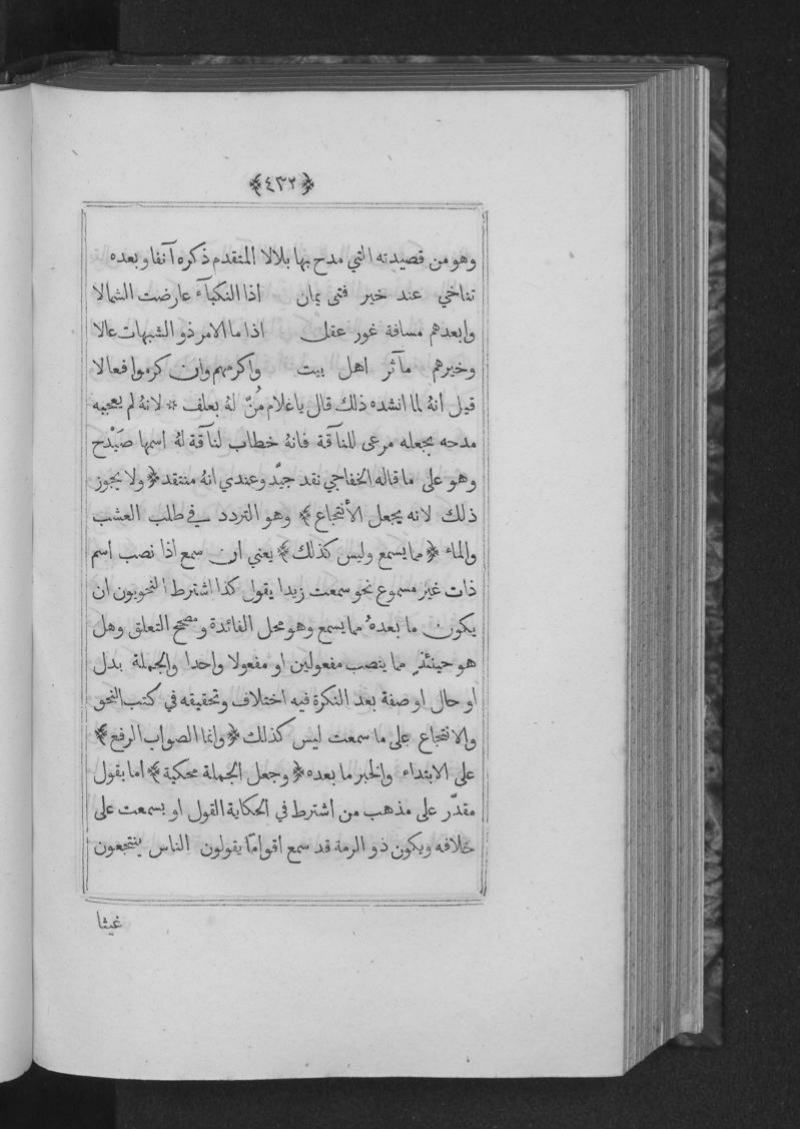 ﴿٤٣٢﴾
وهو من قصيدته التي مدح بها بلالا المتقدم ذكره آنفا وبعده
تناخي عند خير فتى يمان اذا النكبآء عارضت الشمالا
وابعدهم مسافة غور عقل اذا ما الامر ذو الشبهات عالا
وخيرهم مآثر اهل بيت واكرمهم وان كرموا فعالا
قيل انهُ لما انشده ذلك قال يا غلام مُنّ لهُ بعلف * لانهُ لم يعجبه
مدحه بجعله مرعى للنآقة فانهُ خطاب لنآقة لهُ اسمها صَيْدح
وهو على ما قاله الخفاجي نقد جيّد وعندي انهُ منتقد ﴿ ولا يجوز
ذلك لانه يجعل الأنتجاع ﴾ وهو التردد في طلب العشب
والماء ﴿ مما يسمع وليس كذلك ﴾ يعني ان سمع اذا نصب اسم
ذات غير مسموع نحو سمعت زيدا يقول كذا اشترط النحويون ان
يكون ما بعدهُ مما يسمع وهو محل الفائدة ومصحح التعلق وهل
هو حينئذٍ مما ينصب مفعولين او مفعولا واحدا والجملة بدل
او حال او صفة بعد النكرة فيه اختلاف وتحقيقه في كتب النحو
والانتجاع على ما سمعت ليس كذلك ﴿ وانما الصواب الرفع ﴾
على الابتداء والخبر ما بعده ﴿ وجعل الجملة محكية ﴾ اما بقول
مقدّر على مذهب من اشترط في الحكاية القول او بسمعت على
خلافه ويكون ذو الرمة قد سمع اقواما يقولون الناس ينتجعون
غيثا